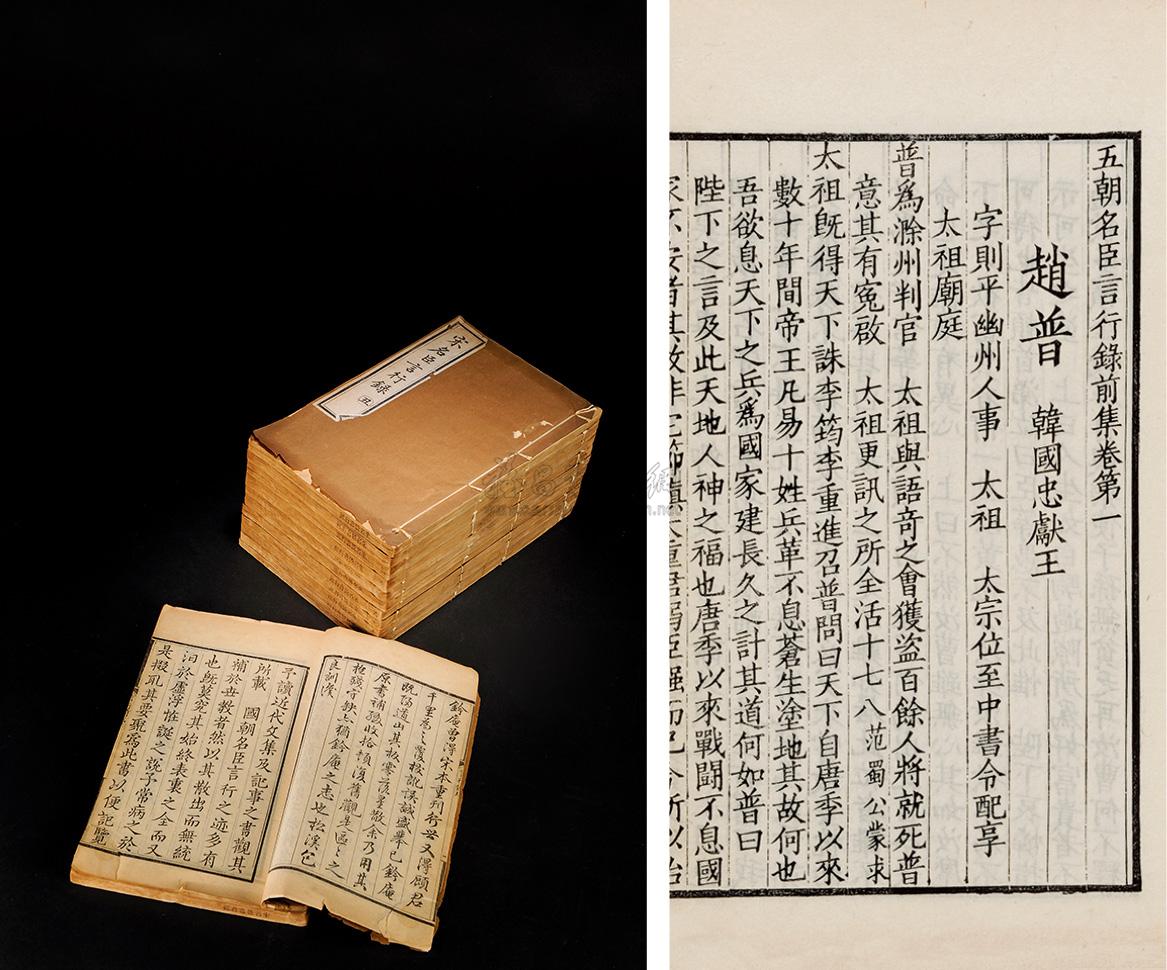 宋名臣言行錄 丑
鈐菴曾得宋本重刋行世又得顧君
千里爲之覆挍訛誤誠盛舉已鈐菴
旣歸道山其板零落星散余乃用其
原書補殘收拾頓復舊觀是區區之
良訓後
予讀近代文集及記事之書觀其
所載 國朝名臣言行之迹多有
補於世教者然以其散出而無統
也旣莫究其始終表裏之全而又
汩於虛浮怪誕之說予常病之於
是掇取其要聚爲此書以便記覽
五朝名臣言行錄前集卷第一
趙普 韓國忠獻王
字則平幽州人事 太祖 太宗位至中書令配享
太祖廟庭
普爲滁州判官 太祖與語竒之會獲盜百餘人將就死普
意其有寃啟 太祖更訊之所全活十七八 范蜀公蒙求
太祖旣得天下誅李筠李重進召普問曰天下自唐季以來
數十年間帝王凡易十姓兵革不息蒼生塗地其故何也
吾欲息天下之兵爲國家建長久之計其道何如普曰
陛下之言及此天地人神之福也唐季以來戰鬭不息國
家不安者其故非它節鎮太重君弱臣强而已今所以治